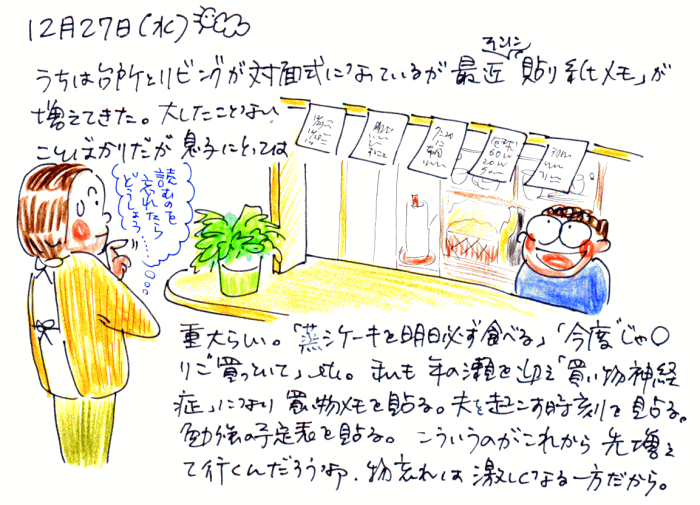 12月27日(水)
うちは台所とリビングが対面式になっているが 最近「貼り紙メモ」が
増えてきた。大したことない
ことばかりだが 息子にとっては
読むのを
忘れたら
どうしよう……
重大らしい。「蒸シケーキを明日必ず食べる」「今度じゃ○
りご買っといて」etc. 私も 年の瀬を迎え「買い物神経
症」になり 買い物メモを貼る。夫を起こす時刻を貼る。
勉強の予定表を貼る。 こういうのがこれから 先増え
て行くんだろうなァ. 物忘れは 激しくなる一方だから。